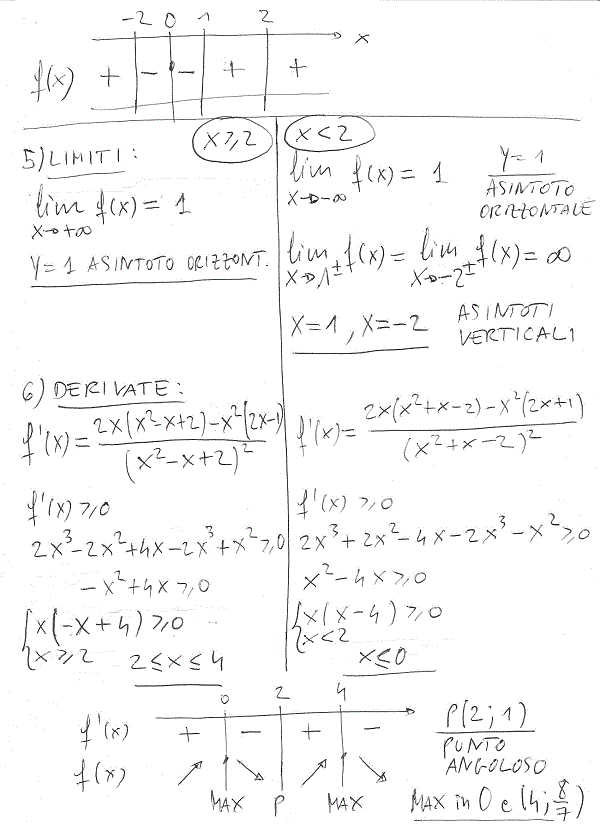 -2 0 1 2
x
f(x) + - - + +
x≥2
x<2
5) LIMITI:
lim f(x) = 1
x→+∞
y=1 ASINTOTO ORIZZONT.
lim f(x) = 1
x→-∞
y=1
ASINTOTO
ORIZZONTALE
lim f(x) = lim f(x) = ∞
x→1± x→-2±
x=1, x=-2
ASINTOTI
VERTICALI
6) DERIVATE:
f'(x) = 2x(x²-x+2)-x²(2x-1)
(x²-x+2)²
f'(x) ≥0
2x³-2x²+4x-2x³+x²≥0
-x²+4x≥0
x(-x+4)≥0
x≥2
2≤x≤4
f'(x) = 2x(x²+x-2)-x²(2x+1)
(x²+x-2)²
f'(x) ≥0
2x³+2x²-4x-2x³-x²≥0
x²-4x≥0
x(x-4)≥0
x<2
x≤0
0 2 4
f'(x) + - + -
f(x) ↗ ↘ ↗ ↘
MAX P MAX
P(2;1)
PUNTO
ANGOLOSO
MAX in 0 e (4; 8/7)